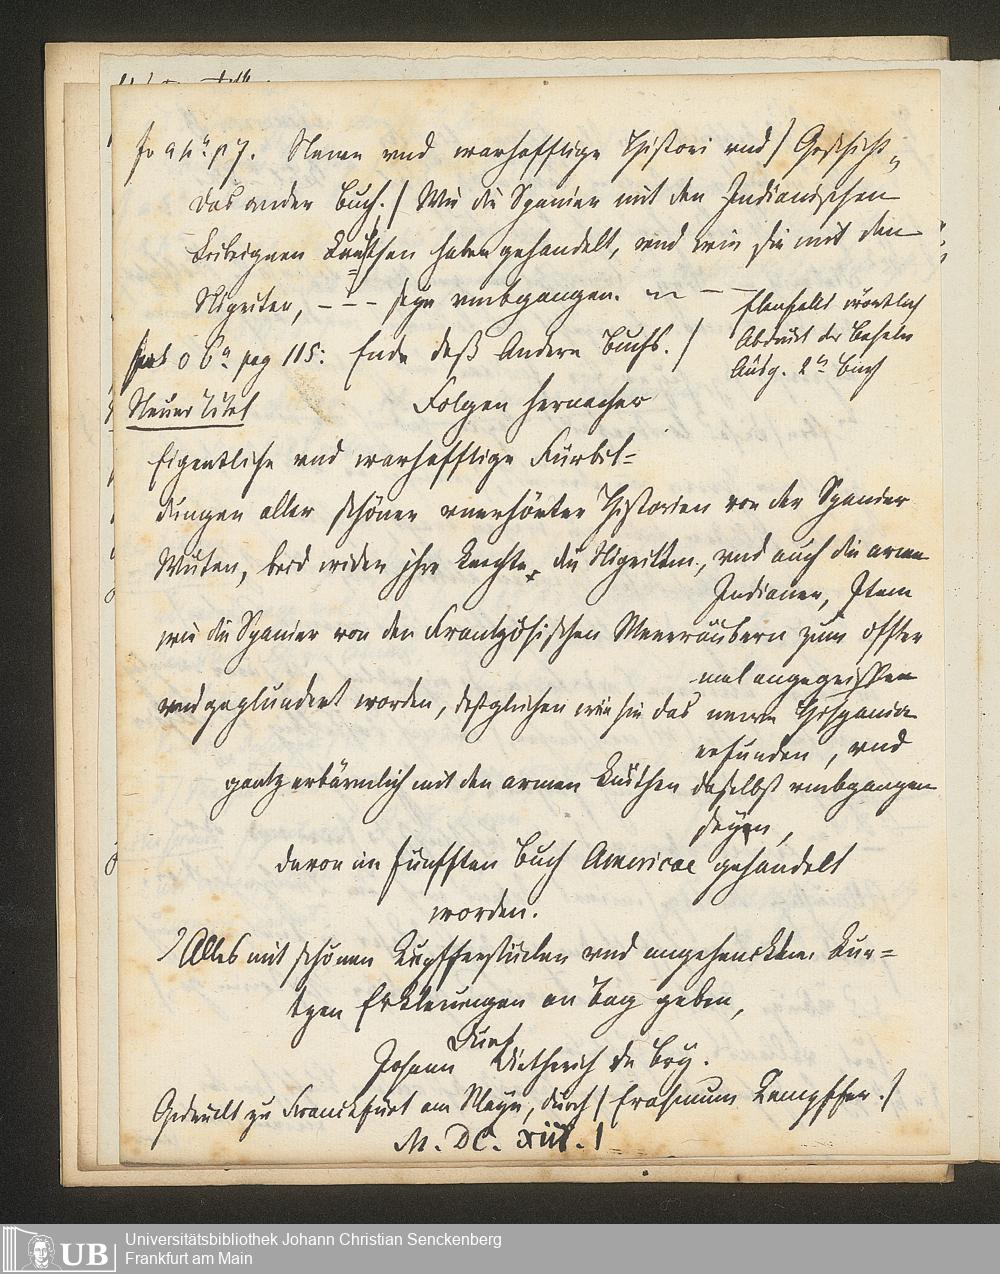 p 7. Neuen vnd warhafftige Histori vnd / Geschicht
das ander Buch. / Wie die Spanier mit den Indianischen
Leibeignen Leuthen haben gehandelt, vnd wie sie mit den
Nigriten, – – – seyn vmbgangen.
Ebenfalls wörtlich
Abdruck der Baseler
Ausg. 2n Buch
pag 115: Ende deß Andern Buchs. /
Neuer Titel
Folgen hernacher
Eigentliche vnd warhafftige Fürbil=
dungen aller schönen vnerhörter Historien von der Spanier
Wüten, beid wider jhre Knechte, die Nigritten, vnd auch die arme
Indianer, Item
wie die Spanier von den Frantzösischen Meerräubern zum offter
mal angegriffen
vnd geplündert worden, deßgleichen wie sie das newe Hispania
erfunden, vnd
gantz erbärmlich mit den armen Leuthen daselbst vmbgangen
seyen,
davon im fünfften Buch Americae gehandelt
worden.
Alles mit schönen Kupfferstücken vnd angehenckten Kur=
tzen Erklerungen an Tag geben,
Durch
Johann Dietherich de Bry.
Gedruckt zu Franckfurt am Mayn, durch / Erasmum Kempffer. /
M. DC. xiii. /
UB
Universitätsbibliothek Johann Christian Senckenberg
Frankfurt am Main